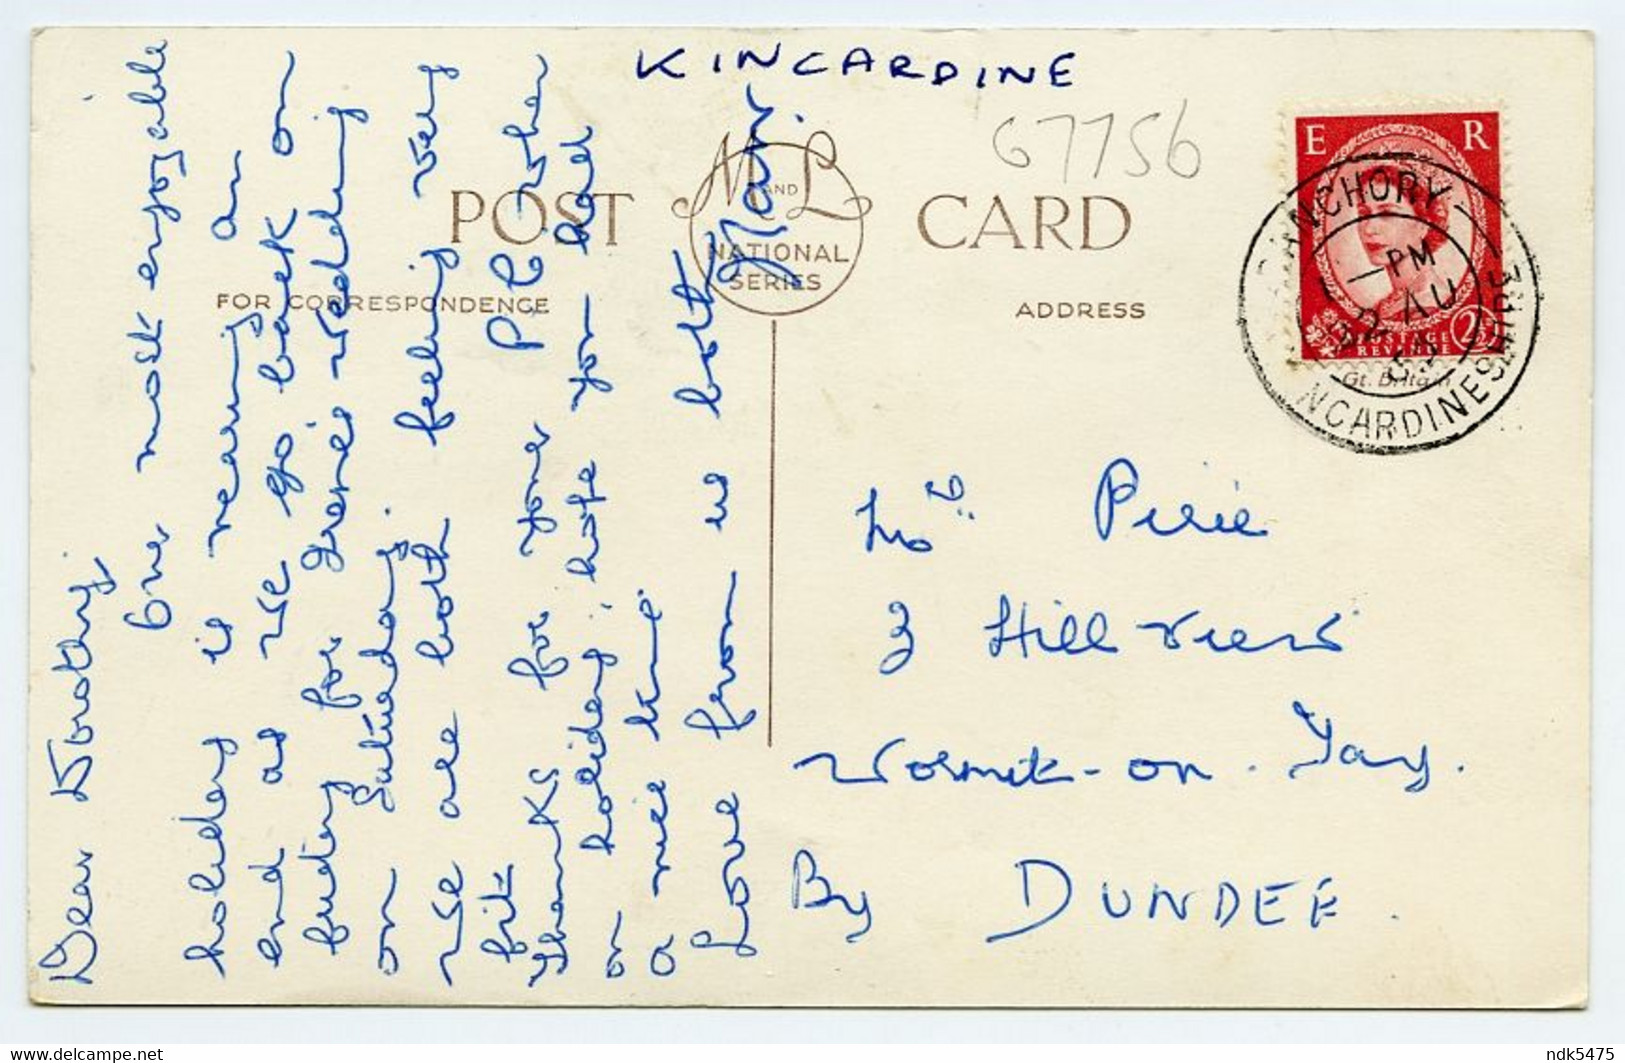 KINCARDINE
67756
POST CARD
M AND L
NATIONAL
SERIES
FOR CORRESPONDENCE
ADDRESS
E R
POSTAGE
REVENUE
2½
Gt. Britain
BANCHORY
1 - PM
22 AU
KINCARDINESHIRE
Dear Dorothy,
Our most enjoyable
holiday is nearing an
end as we go back on
friday for Irene's wedding
on Saturday.
We are both feeling very
fit
Thanks for your P.C. when
on holiday, hope you had
a nice time
Love from us both
Nan.
Mrs Pirie
3 Hill View
Wormit-on-Tay.
By DUNDEE.
Delcampe.net
ndk5475